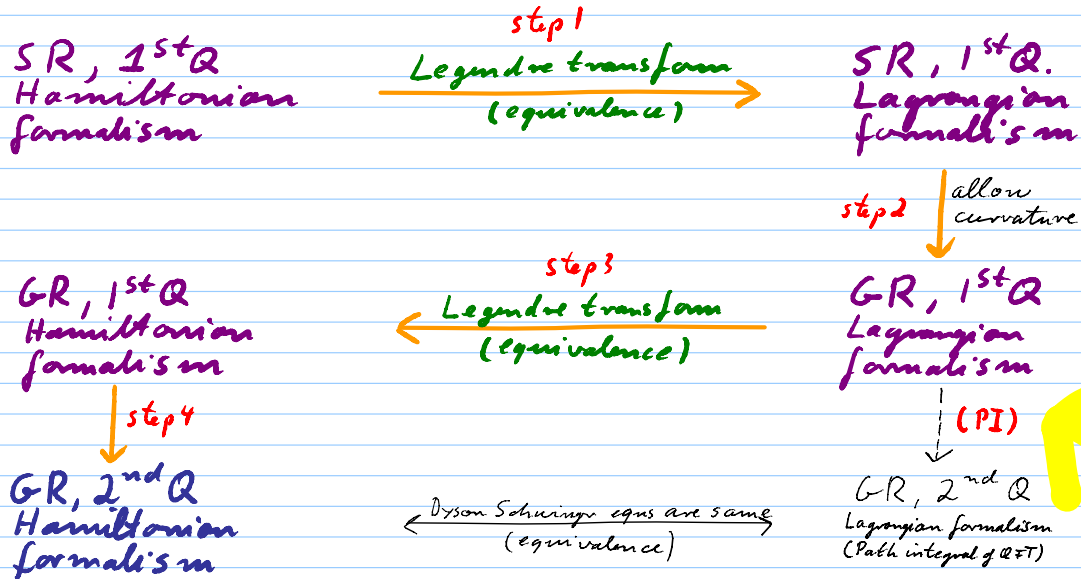 step 1
SR, 1st Q
Hamiltonian
formalism
Legendre transform
(equivalence)
SR, 1st Q.
Lagrangian
formalism
step 2
allow
curvature
GR, 1st Q
Hamiltonian
formalism
step 3
Legendre transform
(equivalence)
GR, 1st Q
Lagrangian
formalism
step 4
(PI)
GR, 2nd Q
Hamiltonian
formalism
Dyson Schwinger eqns are same
(equivalence)
GR, 2nd Q
Lagrangian formalism
(Path integral of QFT)